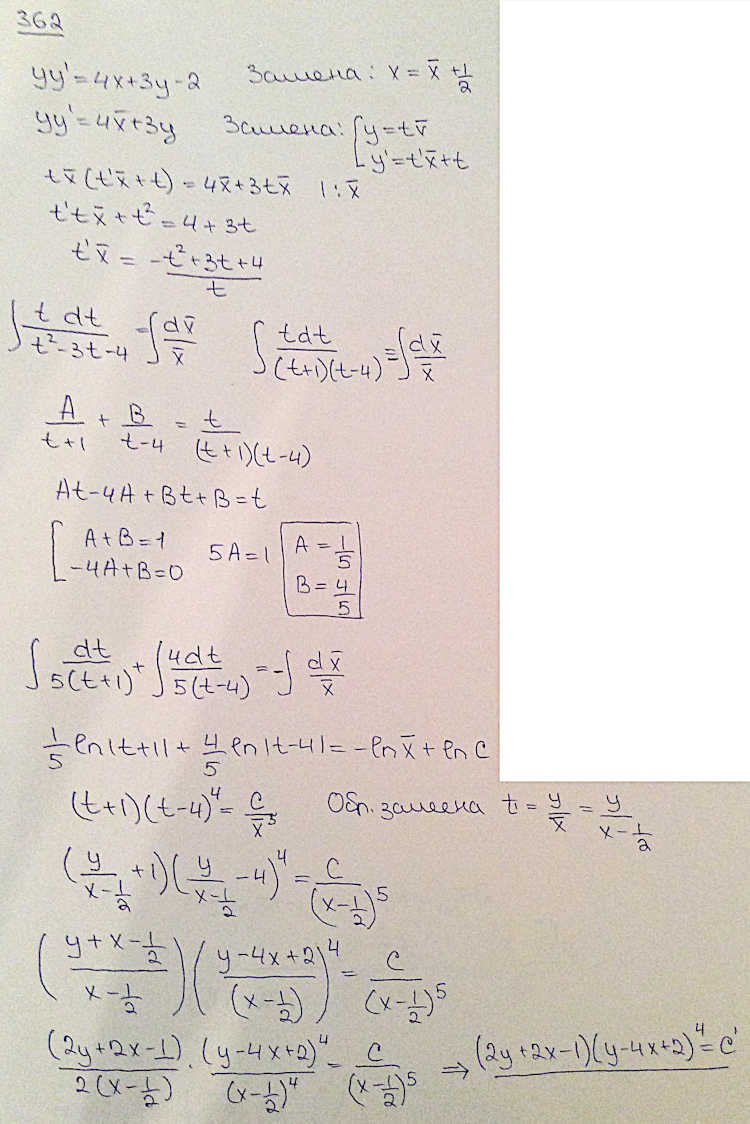 362
yy' = 4x+3y-2 Замена: x = x̄ + 1/2
yy' = 4x̄+3y Замена: { y = tx̄
y' = t'x̄+t
tx̄(t'x̄+t) = 4x̄+3tx̄ | : x̄
t'tx̄ + t² = 4 + 3t
t'x̄ = (-t²+3t+4)/t
∫ t dt/(t²-3t-4) = ∫ dx̄/x̄ ∫ tdt/((t+1)(t-4)) = ∫ dx̄/x̄
A/(t+1) + B/(t-4) = t/((t+1)(t-4))
At-4A+Bt+B=t
[ A+B=1
-4A+B=0 5A=1 A = 1/5
B = 4/5
∫ dt/(5(t+1)) + ∫ 4dt/(5(t-4)) = -∫ dx̄/x̄
1/5 ln|t+1| + 4/5 ln|t-4| = -ln x̄ + ln C
(t+1)(t-4)⁴ = C/x̄⁵ Обр. замена t = y/x̄ = y/(x-1/2)
(y/(x-1/2) +1)(y/(x-1/2) -4)⁴ = C/(x-1/2)⁵
((y+x-1/2)/(x-1/2))((y-4x+2)/(x-1/2))⁴ = C/(x-1/2)⁵
(2y+2x-1)/(2(x-1/2)) · (y-4x+2)⁴/(x-1/2)⁴ = C/(x-1/2)⁵ ⇒ (2y+2x-1)(y-4x+2)⁴ = C'